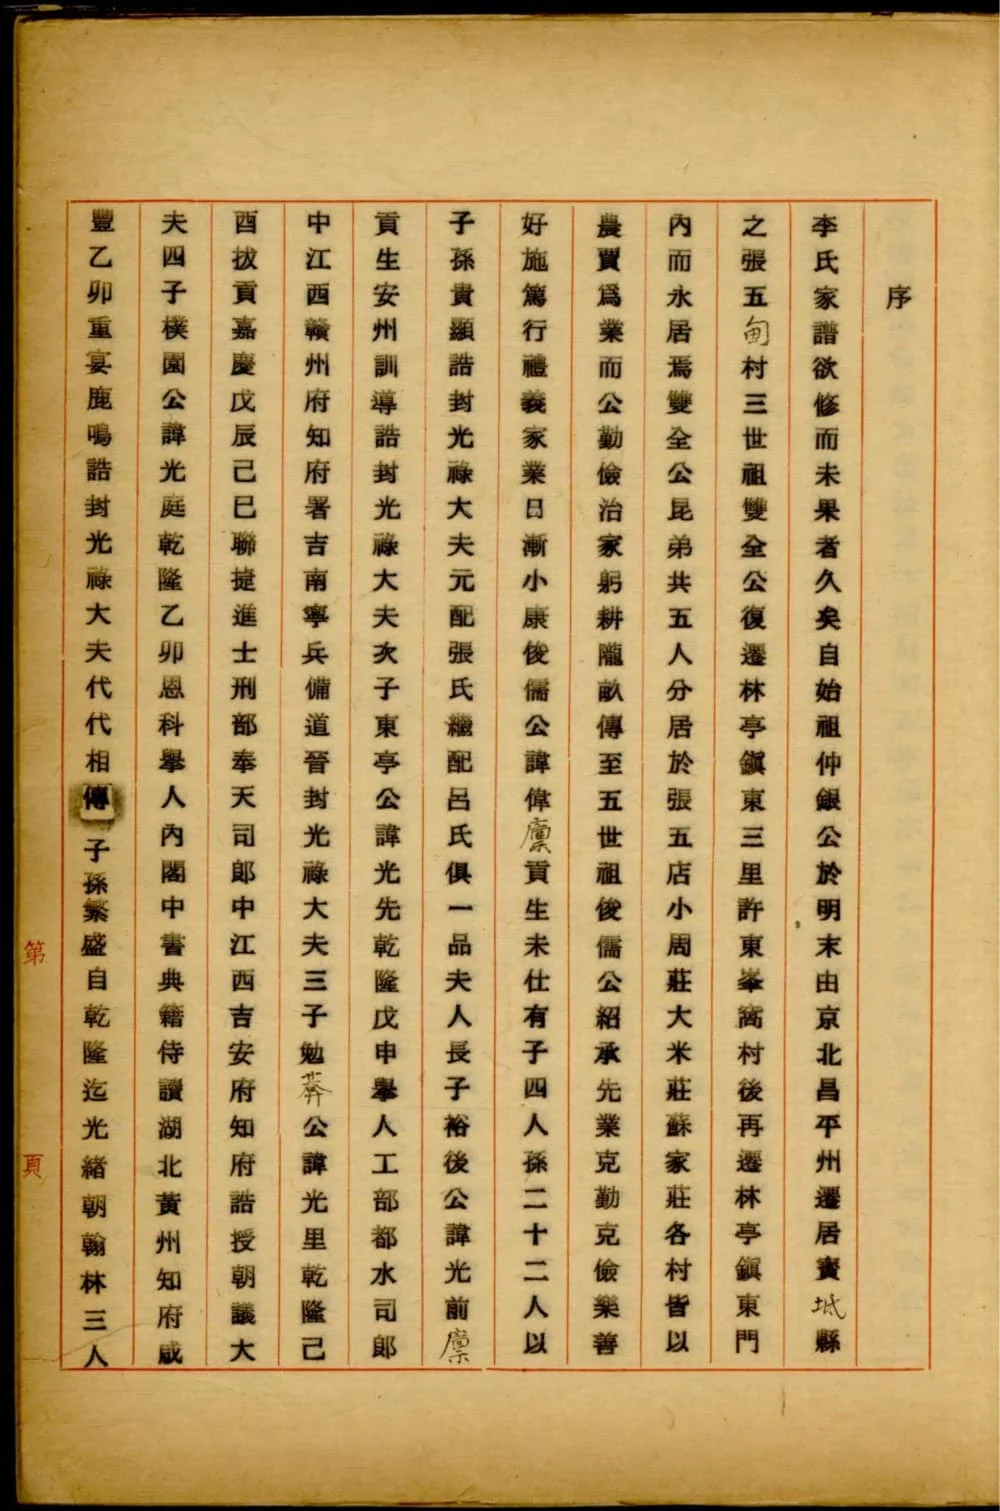 序
李氏家譜欲修而未果者久矣自始祖仲銀公於明末由京北昌平州遷居寶坻縣
之張五甸村三世祖雙全公復遷林亭鎭東三里許東峯窩村後再遷林亭鎭東門
內而永居焉雙全公昆弟共五人分居於張五店小周莊大米莊蘇家莊各村皆以
農賈爲業而公勤儉治家躬耕隴畝傳至五世祖俊儒公紹承先業克勤克儉樂善
好施篤行禮義家業日漸小康俊儒公諱偉廪貢生未仕有子四人孫二十二人以
子孫貴顯誥封光祿大夫元配張氏繼配呂氏俱一品夫人長子裕後公諱光前廪
貢生安州訓導誥封光祿大夫次子東亭公諱光先乾隆戊申擧人工部都水司郎
中江西贛州府知府署吉南寧兵備道晉封光祿大夫三子勉莽公諱光里乾隆己
酉拔貢嘉慶戊辰己巳聯捷進士刑部奉天司郎中江西吉安府知府誥授朝議大
夫四子樸園公諱光庭乾隆乙卯恩科擧人內閣中書典籍侍讀湖北黃州知府咸
豐乙卯重宴鹿鳴誥封光祿大夫代代相傳子孫繁盛自乾隆迄光緒朝翰林三人
第 頁